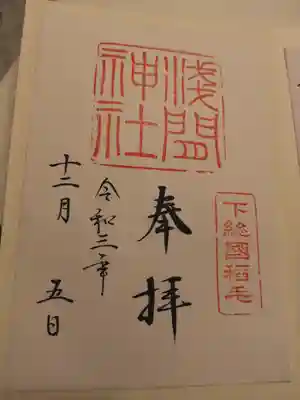 下総國稲毛
奉拝
淺間
神社
令和三年
十二月
五日